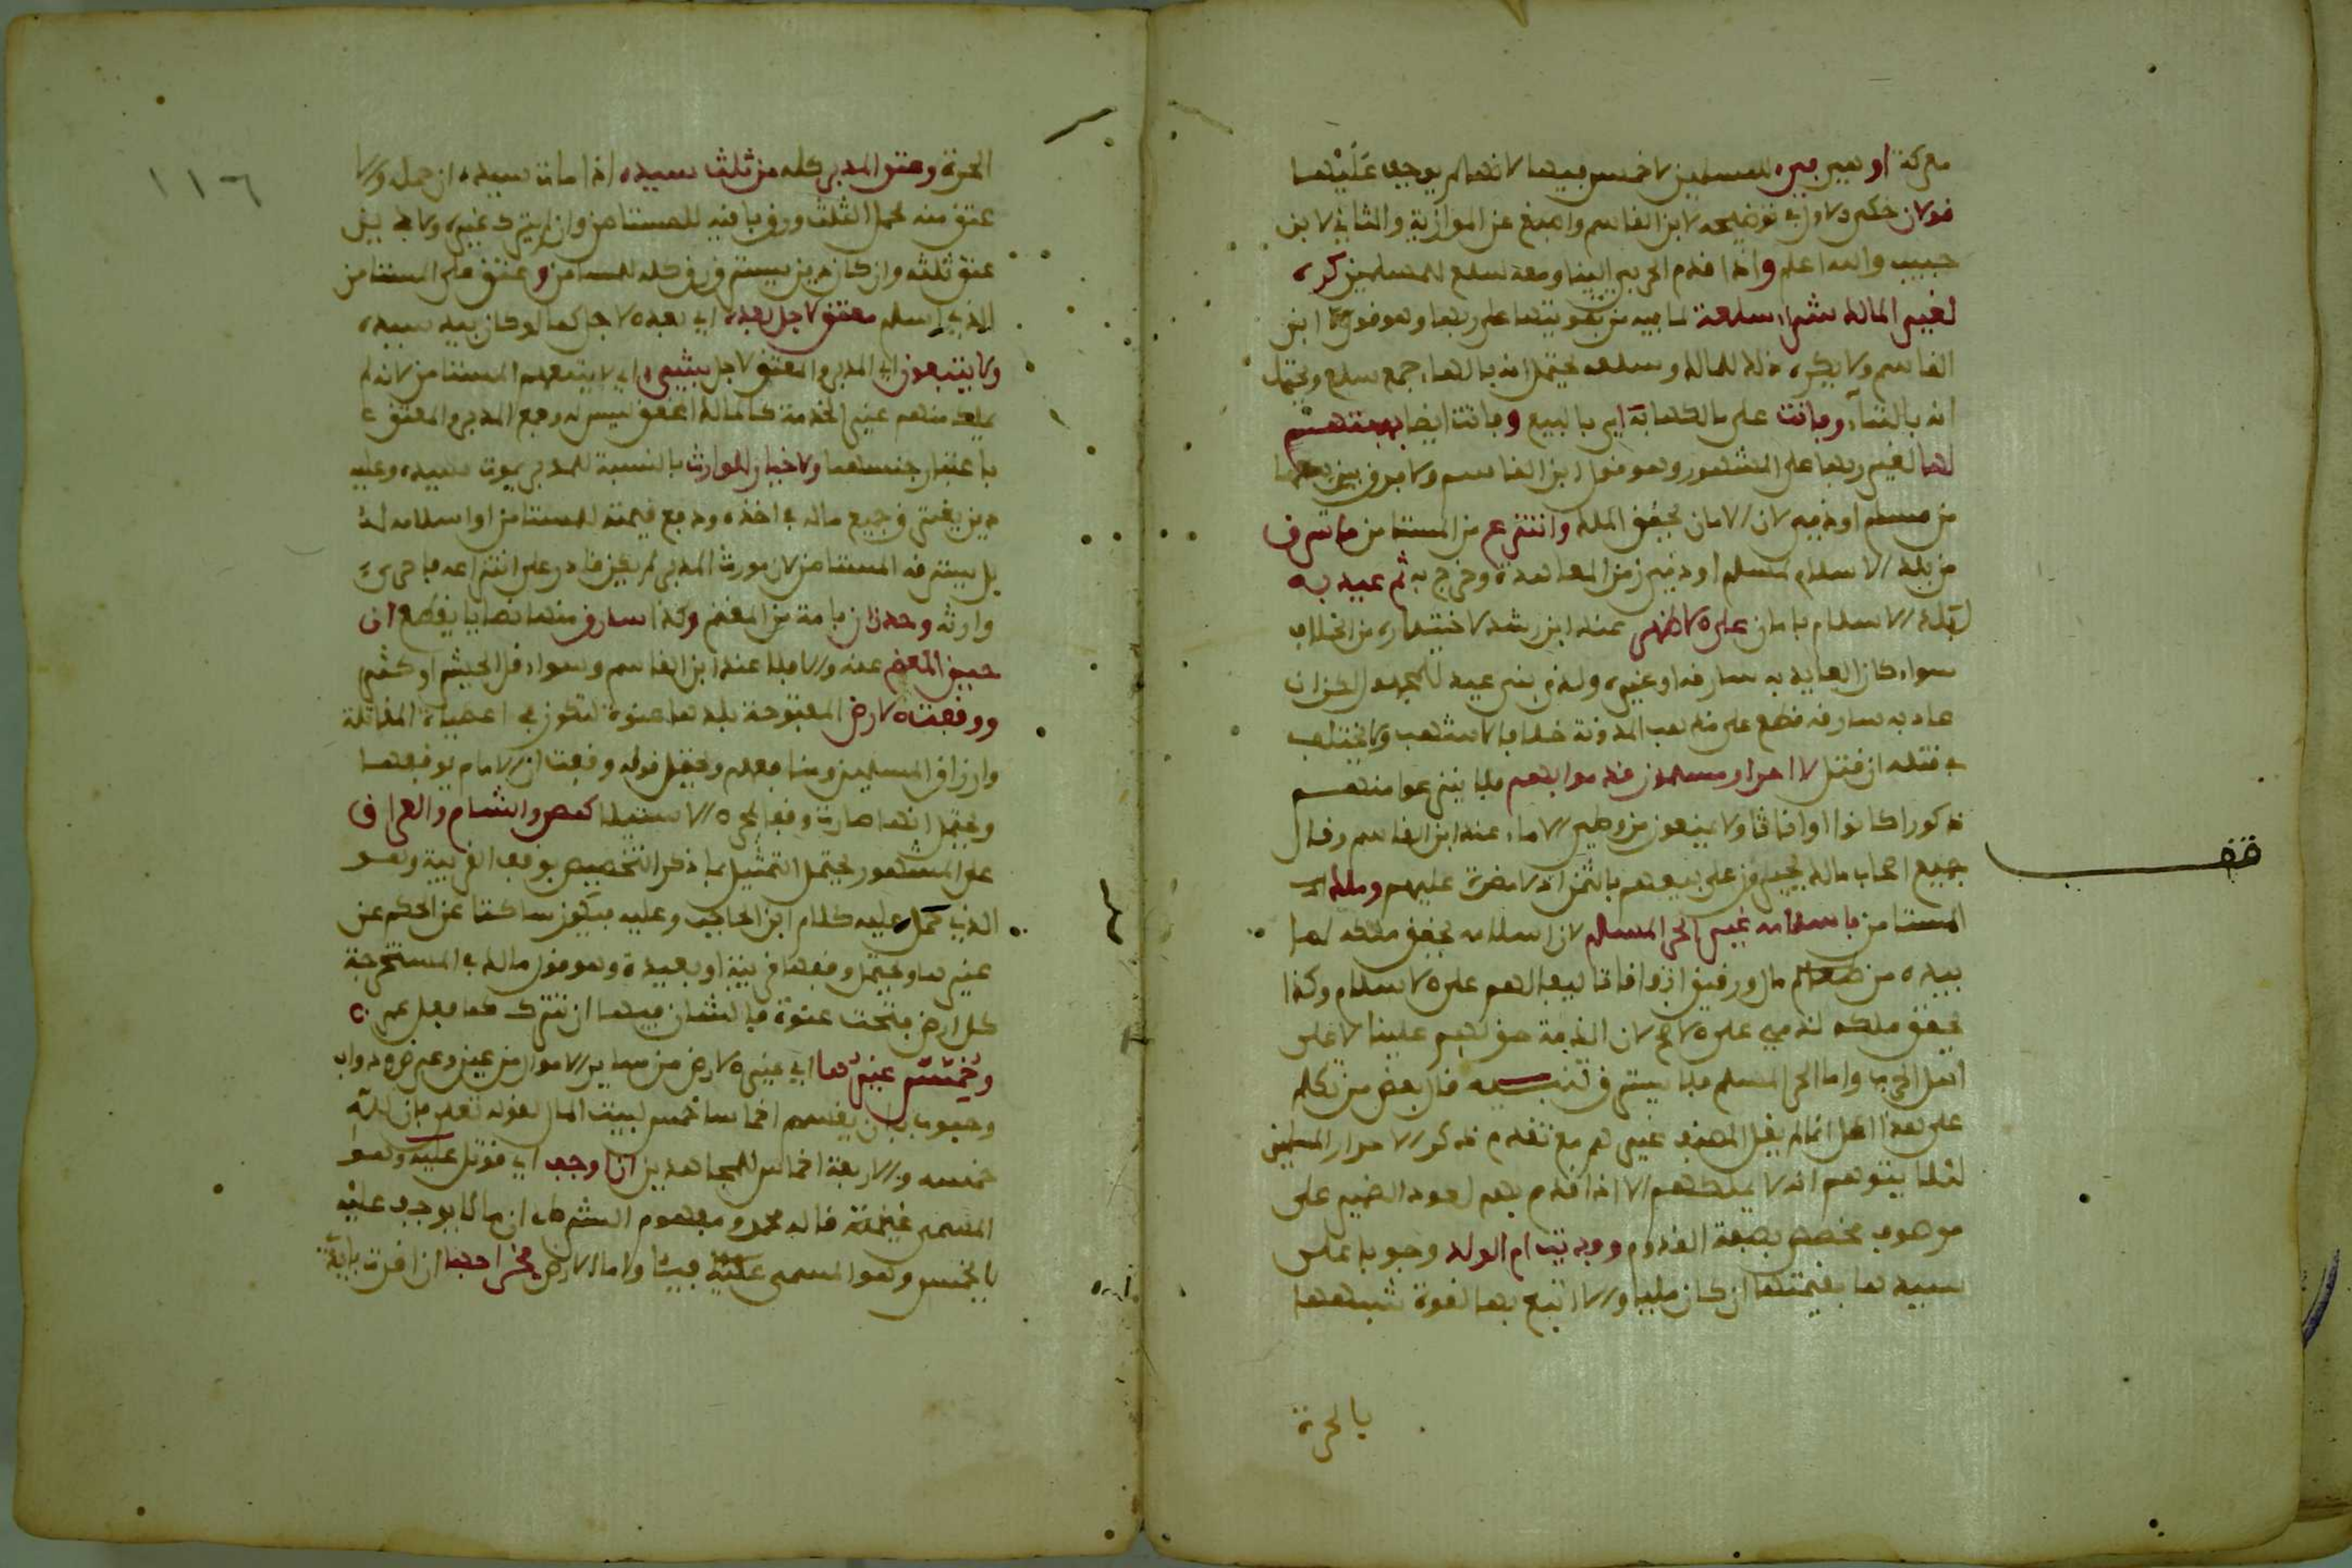 معركة او غير غيره للمسلمين لا خمس فيها لانها لم يوجف عليها
قولان حكى الاول في توضيحه لابن القاسم واصبغ عن الموازية والثاني لابن
حبيب والله اعلم واذا قدم الحربي الينا ومعه سلع للمسلمين كره
لغير المالك شراء سلعه لما فيه من تفويتها على ربها وهو قول ابن
القاسم ولا يكره ذلك للمالك وسلعه يحتمل انه بالهاء جمع سلع ويحتمل
انه بالتاء وفاتت على مالكها به اي بالبيع وفاتت ايضا بهبتهم
لها لغير ربها على المشهور وهو قول ابن القاسم ولا فرق بين
من مسلم او ذمي لان الامان يحقق الملك وانتزع من المستامن ما سرق
من بلد الاسلام لمسلم او ذمي زمن المعاهدة وخرج به ثم عيد به
لبلد الاسلام بامان على الاظهر عند ابن رشد لاختياره من الخلاف
سواء كان العايد به سارقه او غيره ولذا بنى عيد للمجهول لكن ان
عاد به سارقه قطع على مذهب المدونة خلافا لاشهب ولا يختلف
في قتله ان قتل لا احرار مسلمون قدموا بهم فلا ينزعوا منهم
ذكورا كانوا او اناثا ولا يمنعون من وطي الاماء عند ابن القاسم وقال
جميع اصحاب مالك يجبرون على بيعهم بالثمن اذ لا مضرة عليهم وملك اي
المستامن باسلامه غير الحر المسلم لان اسلامه يحقق ملكه لما
بيده من طعام مال ورقيق اذ وافانا ليفا لهم على الاسلام وكذا
يحقق ملكه لذمي على الاصح لان الذمة حق لهم علينا لا على
اهل الحرب واما الحر المسلم فلا يسترق تنبيه قال بعض من تكلم
على هذا المحل انما لم يقل المصنف غيرهم مع تقدم ذكر الاحرار المسلمين
لئلا يتوهم انه لا يملكهم الا اذا قدم بهم لعود الضمير على
موصوف مخصص بصفة القدوم وفديت ام الولد وجوبا على
سيدها بقيمتها ان كان مليا والا اتبع بها لقوة شبهها
بالحرة
قف
١١٦
الحرة وعتق المدبر كله من ثلث سيده اذا مات سيده ان حمله والا
عتق منه محمل الثلث ورق باقيه للمستامن وان لم يترك غيره ولا
عتق ثلثه وان كان دين يستغرق رق كله للمستامن وعتق على المستامن
الذي اسلم معتق لاجل بعده اي بعد الاجل كما لو كان بيد سيده
ولا يتبعون اي المدبر والمعتق لاجل بشيء اي لا يتبعهم المستامن لانه لم
يملك منهم غير الخدمة كمالك المحقق ليس له وجمع المدبر والمعتق
باعتبار جنسهما ولا خيار للوارث بالنسبة للمدبر يموت سيده وعليه
دين يغترق جميع ماله في اخذه ودفع قيمته للمستامن او اسلامه له
بل يسترقه المستامن لان مورث المدبر لم يكن قادر على انتزاعه فاحرى
وارثه وحد زان بامة من المغنم وكذا سارق منها نصابا يقطع ان
حيز المغنم عنه والا فلا عند ابن القاسم وسواء قل الجيش او كثر
ووقفت الارض المفتوحة بلدها عنوة لتكون في اعطياة المقاتلة
وارزاق المسلمين ومنافعهم ويحتمل قوله وقفت ان الامام يوقفها
ويحتمل انها صارت وقفا بمجرد الاستيلا كمصر والشام والعراق
على المشهور يحتمل التمثيل بما ذكر التخصيص بوقف القريبة وهو
الذي حمل عليه كلام ابن الحاجب وعليه فيكون ساكتا عن الحكم عن
غيرها ويحتمل وقفها قريبة او بعيدة وهو قول مالك في المستخرجة
كل ارض فتحت عنوة فالشان فيها ان تترك كما فعل عمر
وخمس غيرها اي غير الارض من ساير الاموال من عين وعروض ودواب
وحبوب بان يقسم اخماسا خمس لبيت المال لقوله تعالى فان لله
خمسه والاربعة اخماس للمجاهدين ان اوجف اي قوتل عليه وهو
المسمى غنيمة قاله محمد ومفهوم الشرط ان ما لا يوجف عليه
لا يخمس وهو المسمى فيئا واما الارض فخراجها ان اقرت باية